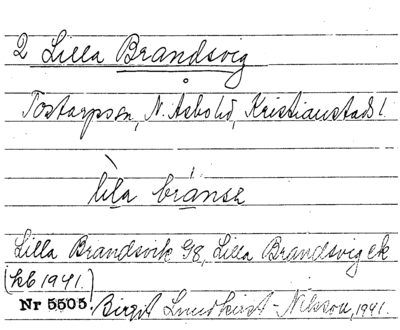 2 Lilla Brandsvig
Tostarpssn, N. Åsbohd, Kristianstads l.
lìla bránsa
Lilla Brandsvik G8, Lilla Brandsvig ek
(kb 1941.)
Nr 5505. Birgit Lindkvist-Nilsson, 1941.